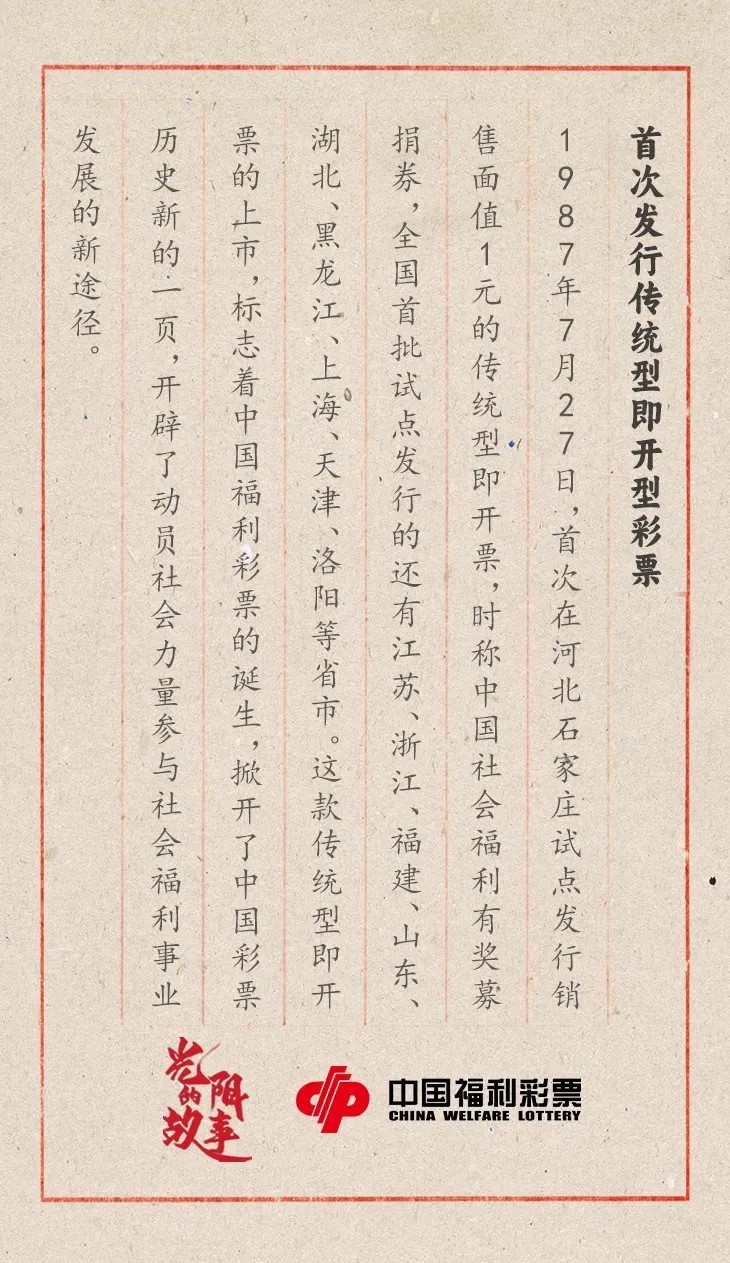 首次发行传统型即开型彩票
1987年7月27日，首次在河北石家庄试点发行销
售面值1元的传统型即开票，时称中国社会福利有奖募
捐券，全国首批试点发行的还有江苏、浙江、福建、山东、
湖北、黑龙江、上海、天津、洛阳等省市。这款传统型即开
票的上市，标志着中国福利彩票的诞生，掀开了中国彩票
历史新的一页，开辟了动员社会力量参与社会福利事业
发展的新途径。
光阴的故事
中国福利彩票
CHINA WELFARE LOTTERY